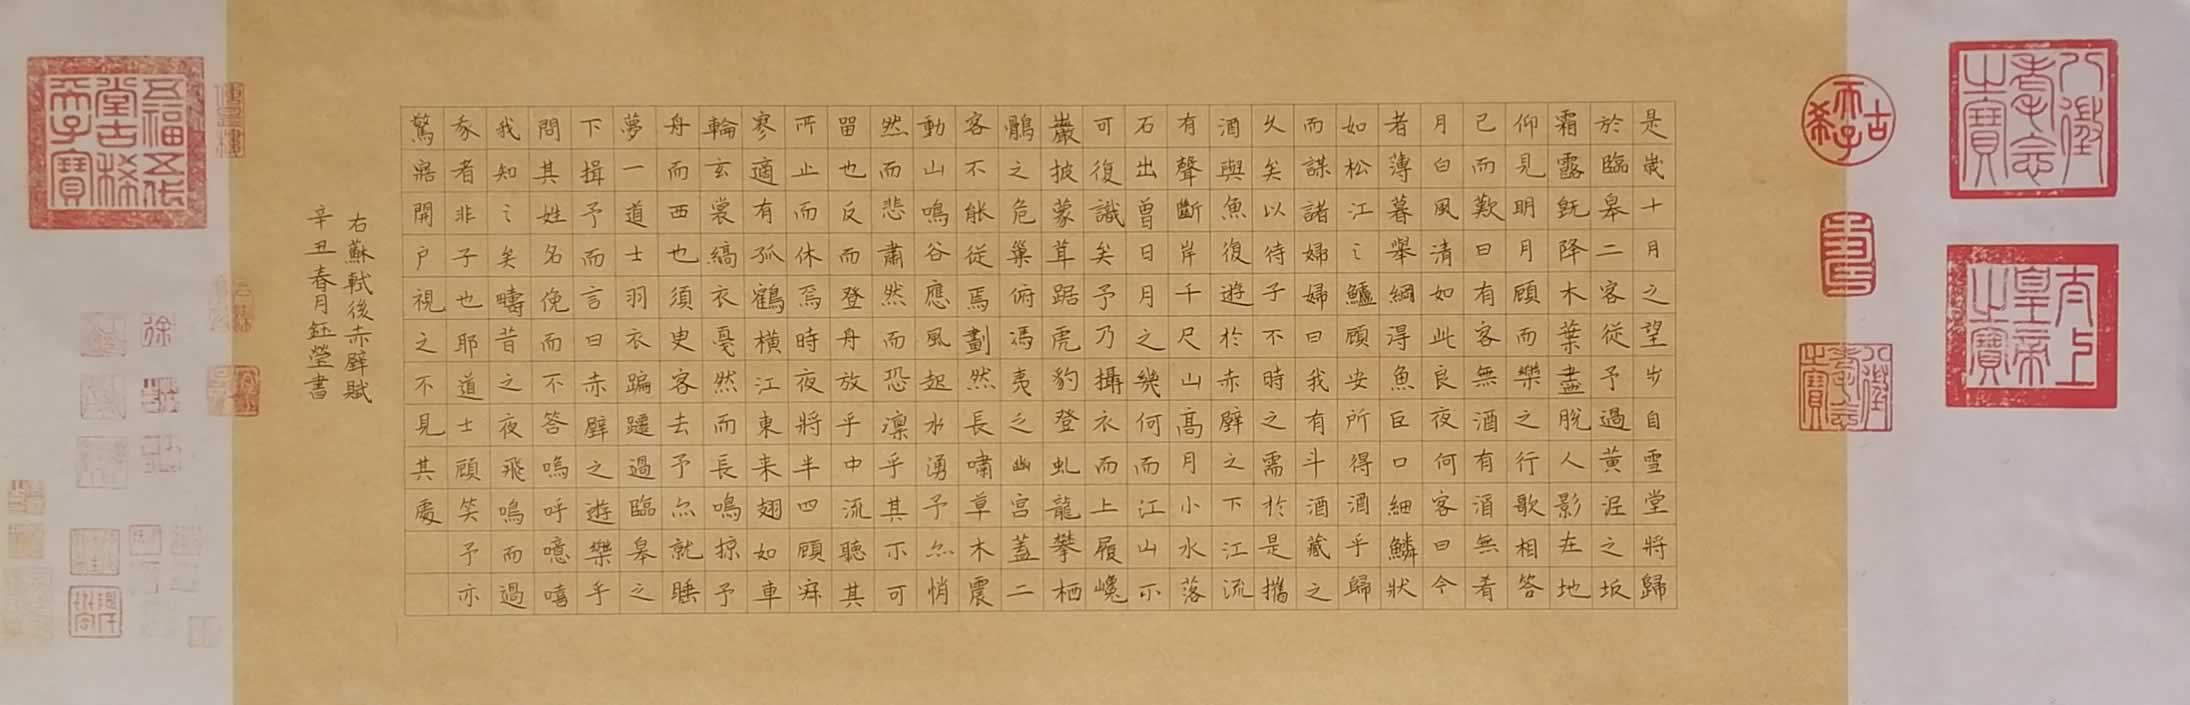 八徵耄念之寶
太上皇帝之寶
古希天子
壽
八徵耄念之寶
是歲十月之望步自雪堂將歸
於臨皋二客從予過黃泥之坂
霜露既降木葉盡脫人影在地
仰見明月顧而樂之行歌相答
已而歎曰有客無酒有酒無肴
月白風清如此良夜何客曰今
者薄暮舉網得魚巨口細鱗狀
如松江之鱸顧安所得酒乎歸
而謀諸婦婦曰我有斗酒藏之
久矣以待子不時之需於是攜
酒與魚復遊於赤壁之下江流
有聲斷岸千尺山高月小水落
石出曾日月之幾何而江山不
可復識矣予乃攝衣而上履巉
巖披蒙茸踞虎豹登虬龍攀栖
鶻之危巢俯馮夷之幽宮蓋二
客不能從焉劃然長嘯草木震
動山鳴谷應風起水湧予亦悄
然而悲肅然而恐凜乎其不可
留也反而登舟放乎中流聽其
所止而休焉時夜將半四顧寂
寥適有孤鶴橫江東来翅如車
輪玄裳縞衣戛然而長鳴掠予
舟而西也須臾客去予亦就睡
夢一道士羽衣蹁躚過臨皋之
下揖予而言曰赤壁之遊樂乎
問其姓名俛而不答嗚呼噫嘻
我知之矣疇昔之夜飛嗚而過
我者非子也耶道士顧笑予亦
驚寤開戶視之不見其處
右蘇軾後赤壁賦
辛丑春月鈺瑩書
五福五代堂古稀天子寶